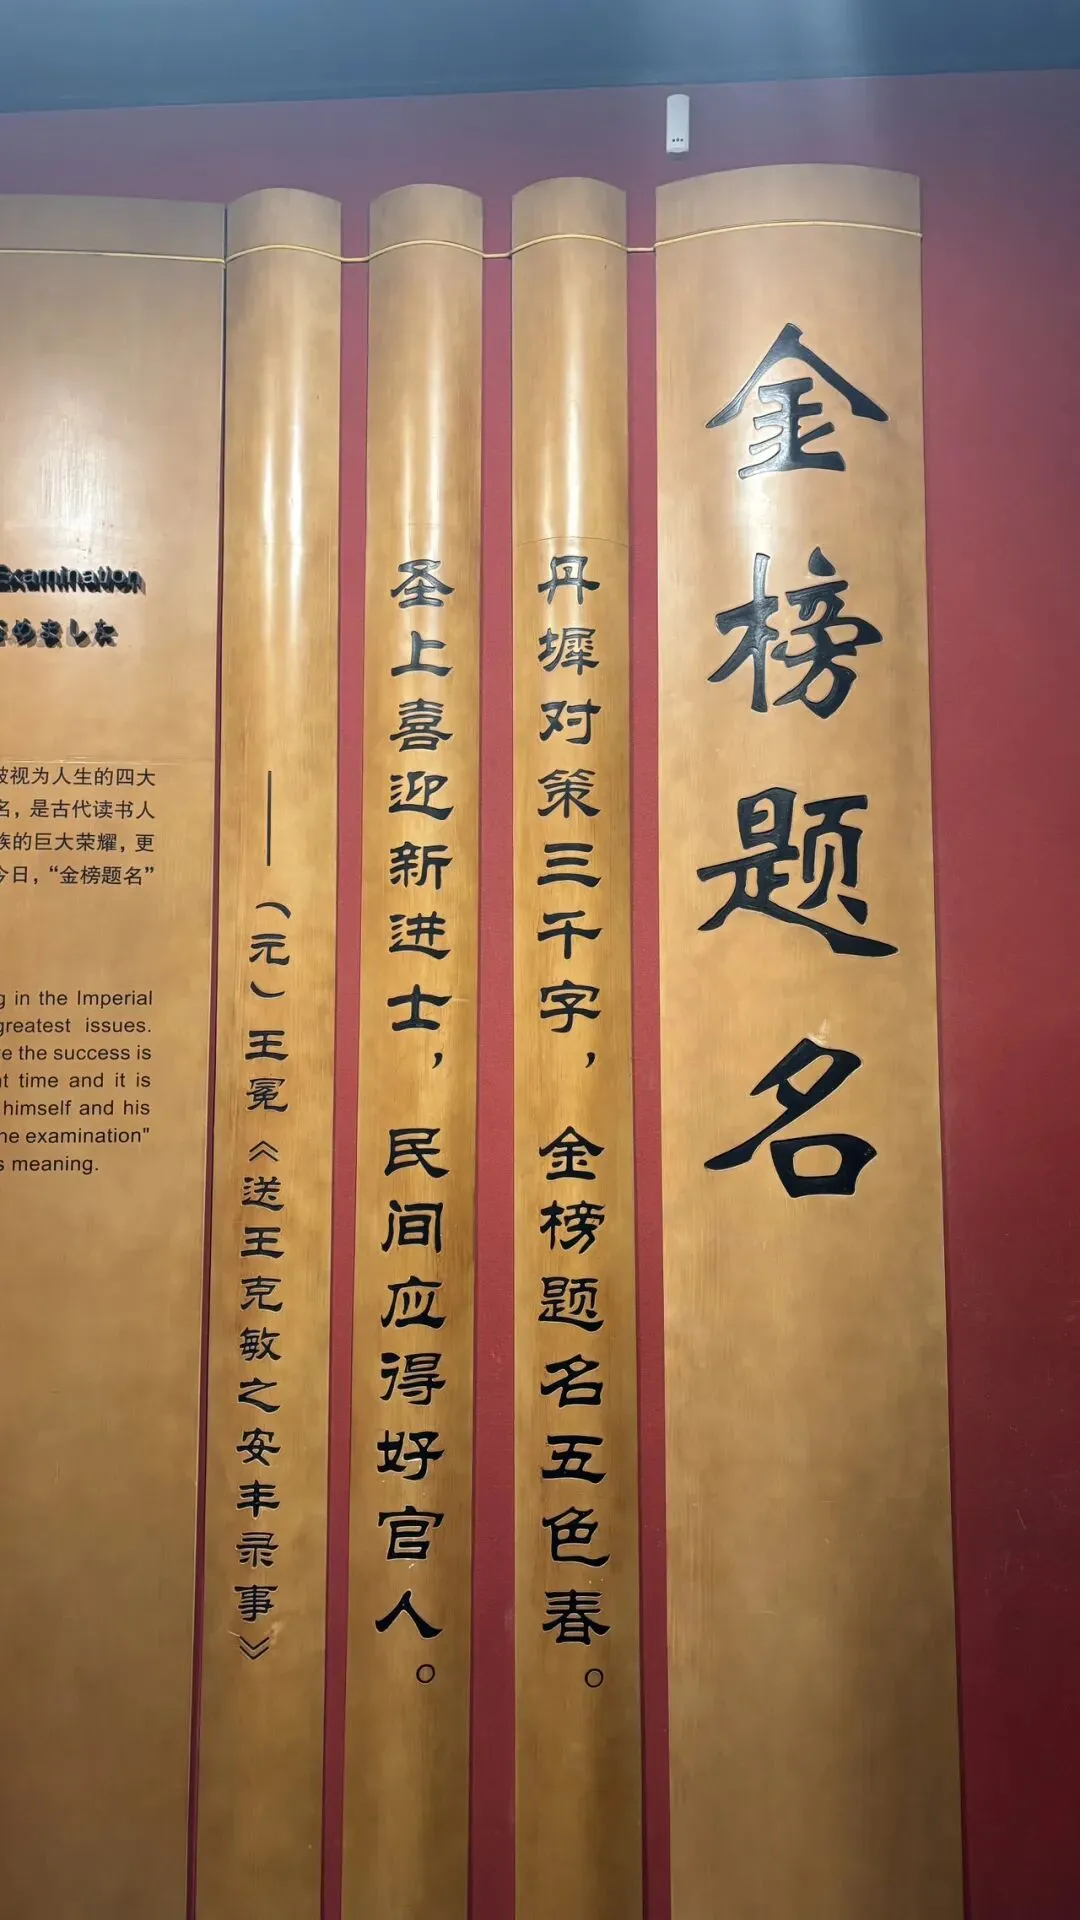 金榜题名
丹墀对策三千字，金榜题名五色春。
圣上喜迎新进士，民间应得好官人。
——（元）王冕《送王克敏之安丰录事》
Examination
めました
被视为人生的四大
名，是古代读书人
族的巨大荣耀，更
今日，“金榜题名”
g in the Imperial
greatest issues.
e the success is
t time and it is
himself and his
he examination"
s meaning.